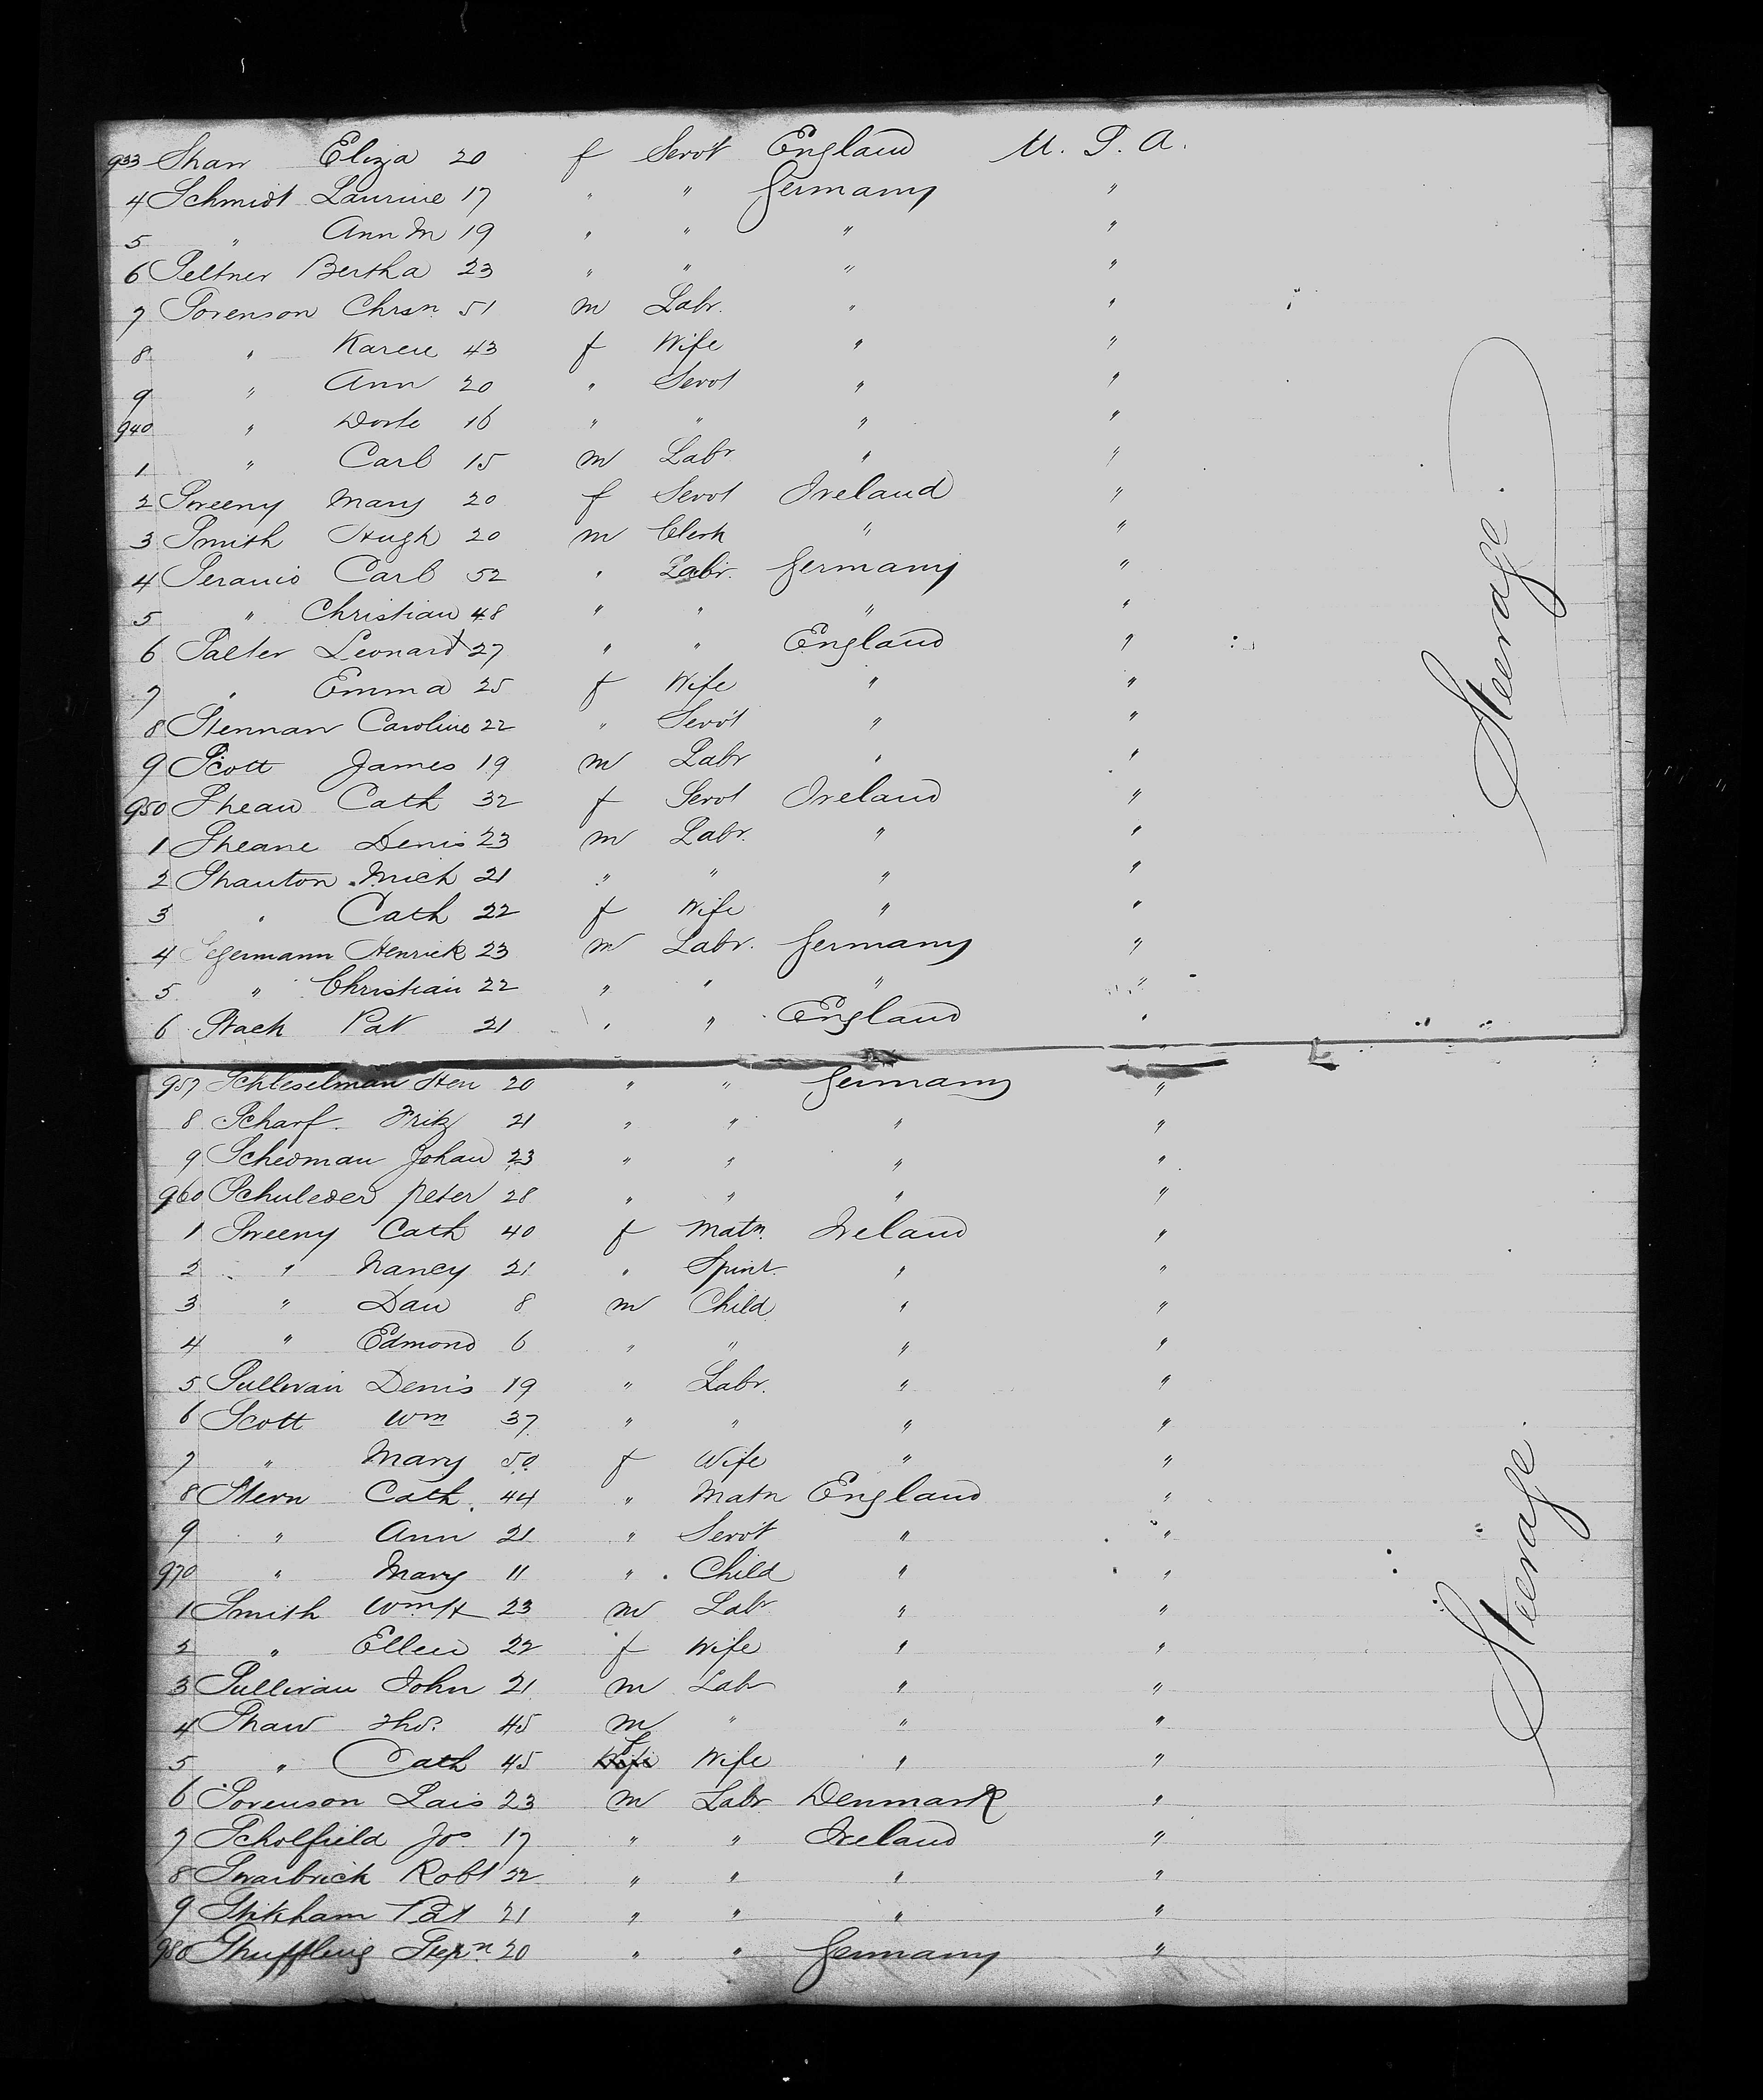 933 Shaw Eliza 20 f Servt England U. S. A.
4 Schmidt Laurine 17 " " Germany "
5 " Ann M 19 " " " "
6 Seltner Bertha 23 " " " "
7 Sorenson Chrsn 51 m Labr. " "
8 " Karen 43 f Wife " "
9 " Ann 20 " Servt " "
940 " Dorte 16 " " " "
1 " Carl 15 m Labr " "
2 Sweeny Mary 20 f Servt Ireland "
3 Smith Hugh 20 m Clerk " "
4 Carl 52 " Labr. Germany "
5 " Christian 48 " " " "
6 Salter Leonard 27 " " England "
7 " Emma 25 f Wife " "
8 Stennan Caroline 22 " Servt " "
9 Scott James 19 m Labr " "
950 Shean Cath 32 f Servt Ireland "
1 Sheane Denis 23 m Labr. " "
2 Shanton Mich 21 " " " "
3 " Cath 22 f Wife " "
4 Segermann Henrick 23 m Labr. Germany "
5 " Christian 22 " " " "
6 Stack Pat 21 " " England "
Steerage.
957 Schleselman Hen 20 " " Germany "
8 Scharf Fritz 21 " " " "
9 Schedman Johan 23 " " " "
960 Schuleder Peter 28 " " " "
1 Sweeny Cath 40 f Matn. Ireland "
2 " Nancy 21 " Spinr. " "
3 " Dan 8 m Child " "
4 " Edmond 6 " " " "
5 Sullivan Denis 19 " Labr. " "
6 Scott Wm 37 " " " "
7 " Mary 50 f Wife " "
8 Stern Cath. 44 " Matn England "
9 " Ann 21 " Servt " "
970 " Mary 11 " Child " "
1 Smith Wm H 23 m Labr " "
2 " Ellen 22 f Wife " "
3 Sullivan John 21 m Labr " "
4 Shaw Thos. 45 m " " "
5 " Cath 45 f Wife " "
6 Sorenson Lais 23 m Labr Denmark "
7 Scholfield Jos 17 " " Ireland "
8 Swarbrick Robt 22 " " " "
9 Stikham Pat 21 " " " "
980 Shuffling Stepn 20 " " Germany "
Steerage